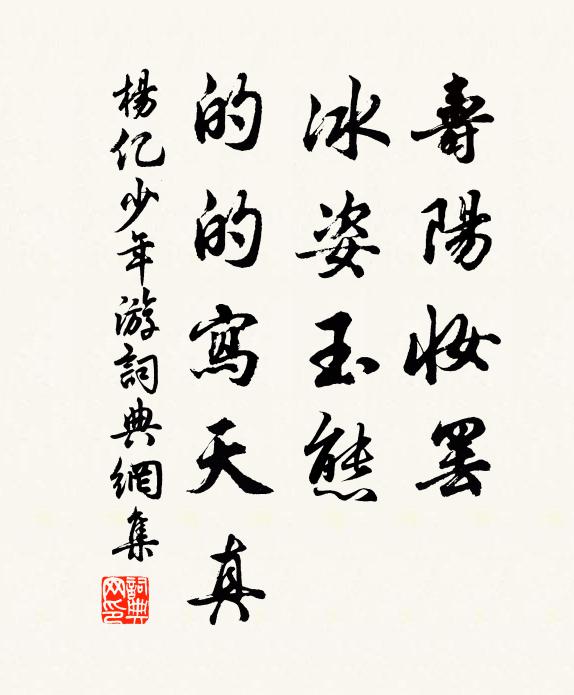 壽陽妆罷
冰姿玉態
的的寫天真
楊億少年游詞典網集
詞典
网印